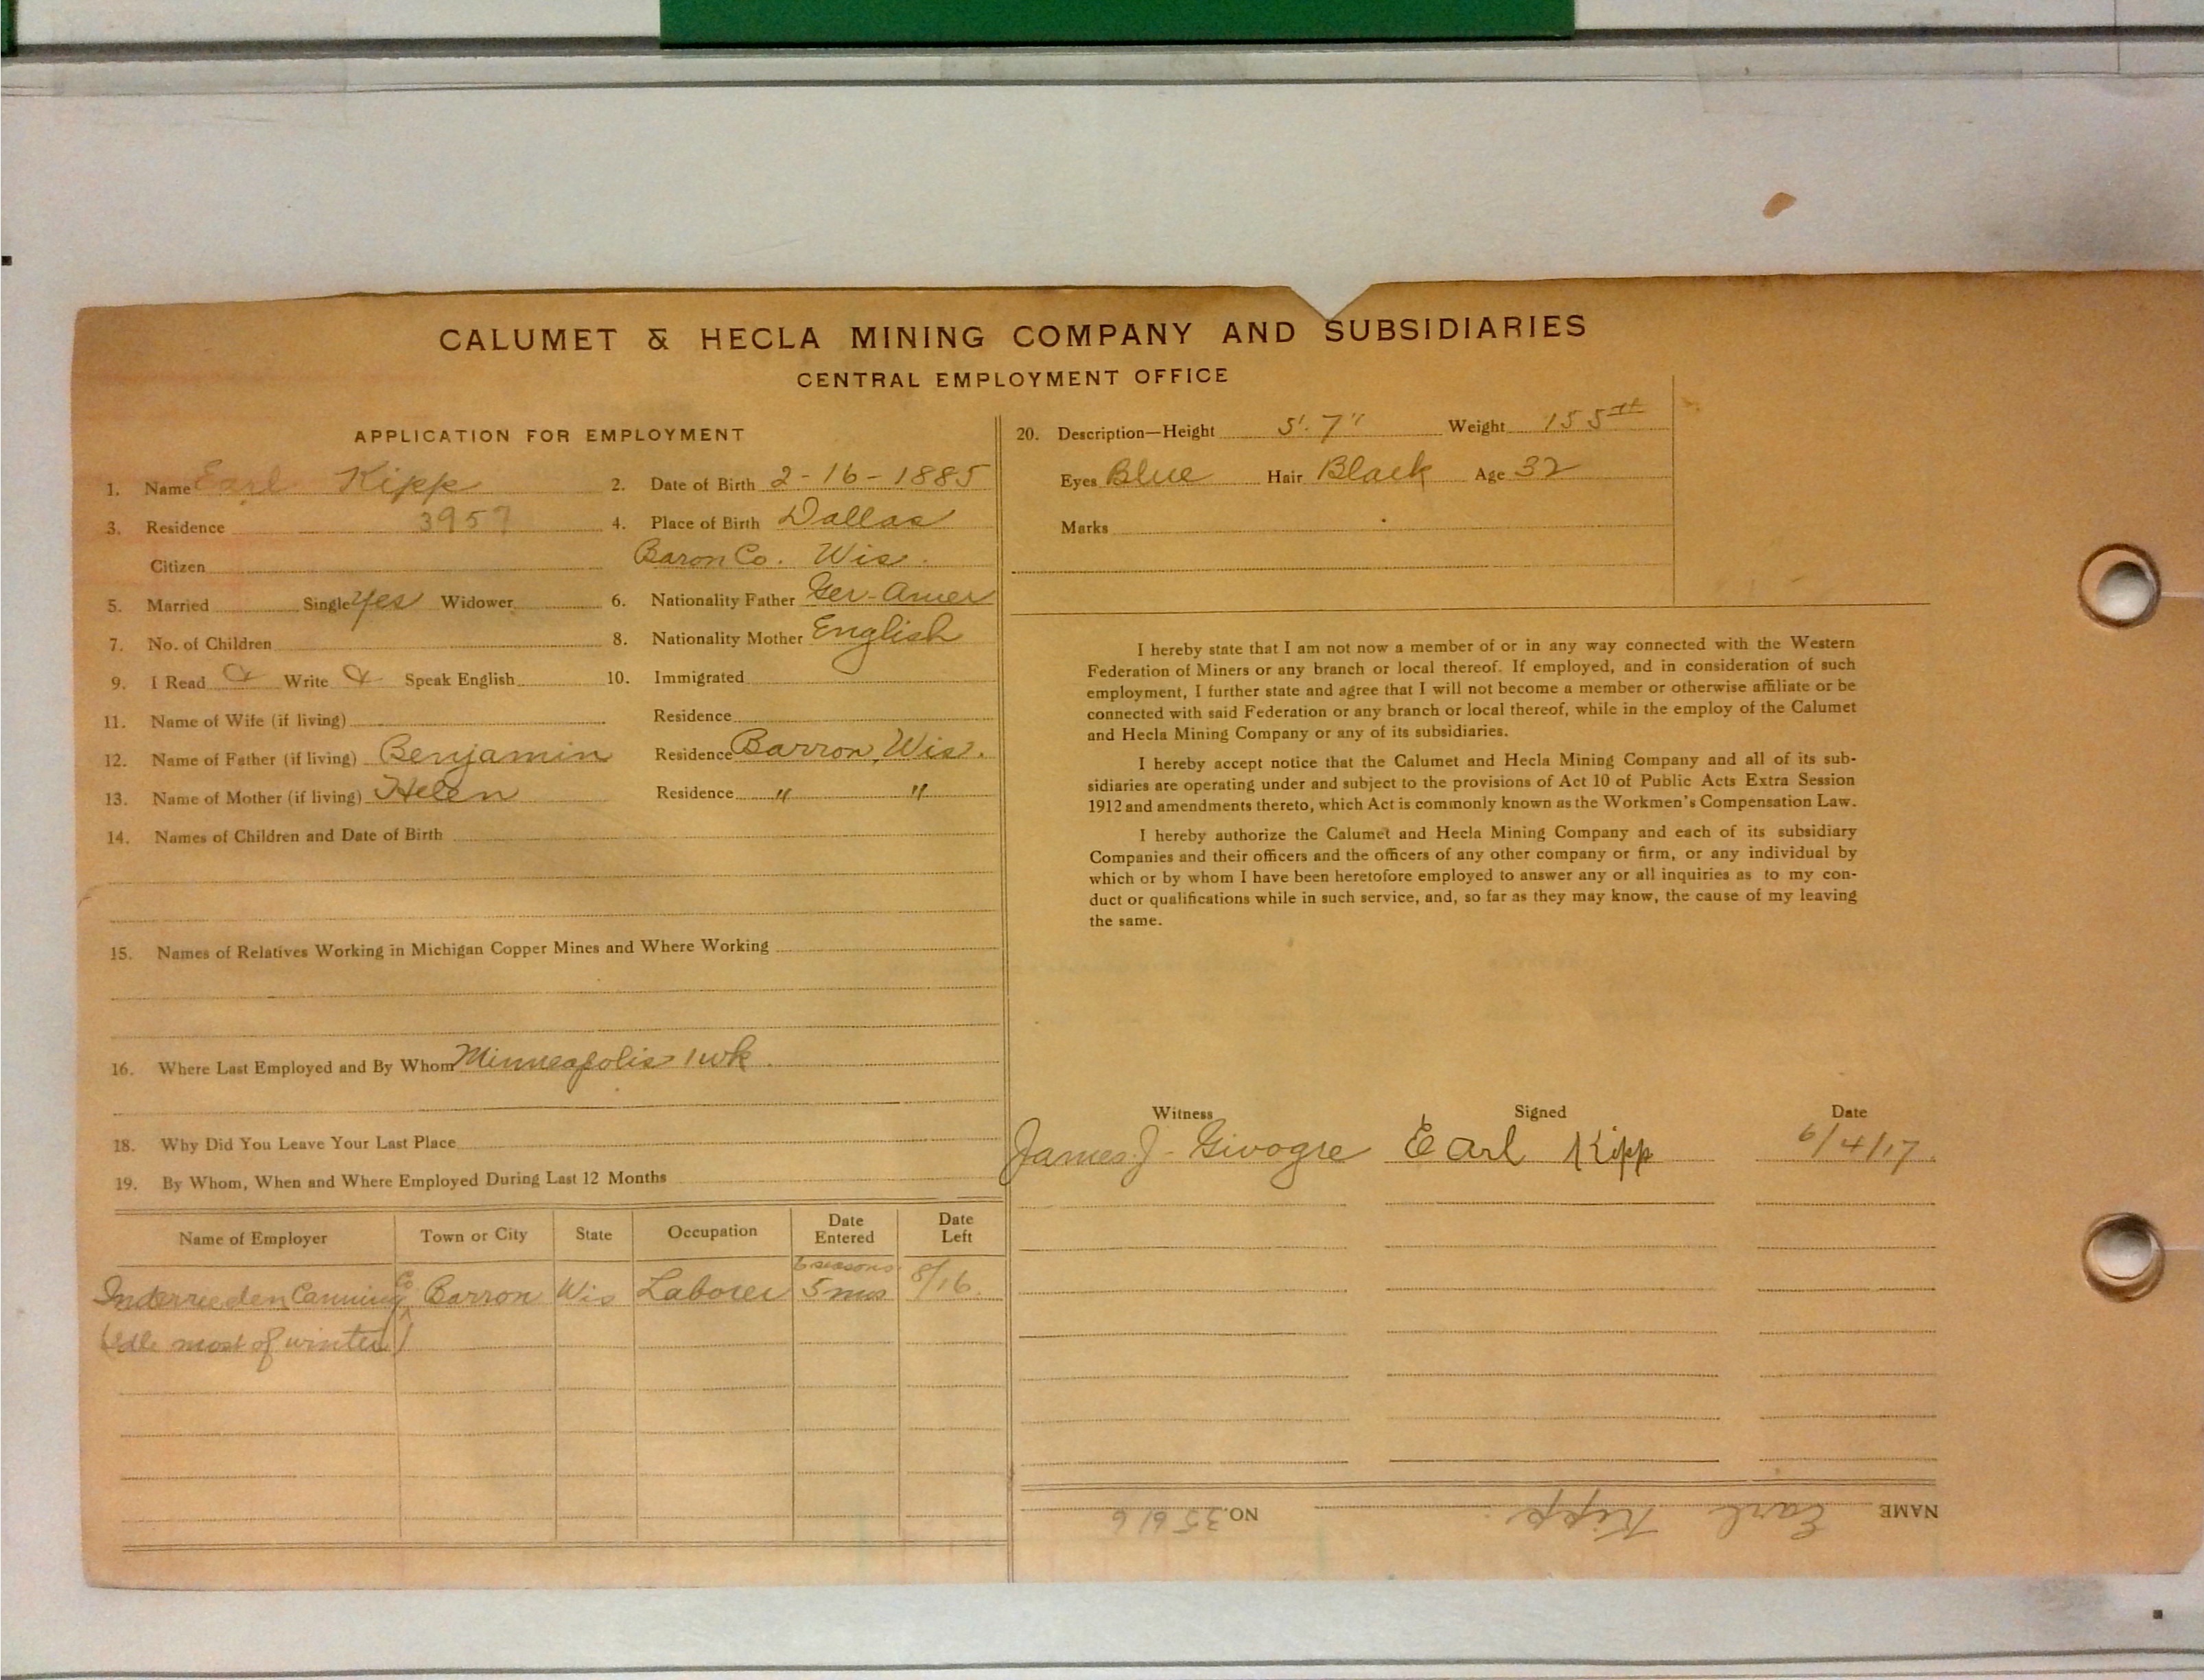 CALUMET & HECLA MINING COMPANY AND SUBSIDIARIES
CENTRAL EMPLOYMENT OFFICE
APPLICATION FOR EMPLOYMENT
1. Name Earl Kipp
2. Date of Birth 2-16-1885
3. Residence 3957
4. Place of Birth Dallas
Citizen
Baron Co. Wis.
5. Married Single Yes Widower
6. Nationality Father Ger-Amer
7. No. of Children
8. Nationality Mother English
9. I Read Write Speak English
10. Immigrated
11. Name of Wife (if living)
Residence
12. Name of Father (if living) Benjamin
Residence Barron, Wis.
13. Name of Mother (if living) Helen
Residence " "
14. Names of Children and Date of Birth
15. Names of Relatives Working in Michigan Copper Mines and Where Working
16. Where Last Employed and By Whom Minneapolis 1 wk.
18. Why Did You Leave Your Last Place
19. By Whom, When and Where Employed During Last 12 Months
Name of Employer Town or City State Occupation Date Entered Date Left
6 seasons
Inderrieden Canning Co Barron Wis Laborer 5 mos 8/16.
(Idle most of winter)
20. Description—Height 5'. 7" Weight 155#
Eyes Blue Hair Black Age 32
Marks
I hereby state that I am not now a member of or in any way connected with the Western
Federation of Miners or any branch or local thereof. If employed, and in consideration of such
employment, I further state and agree that I will not become a member or otherwise affiliate or be
connected with said Federation or any branch or local thereof, while in the employ of the Calumet
and Hecla Mining Company or any of its subsidiaries.
I hereby accept notice that the Calumet and Hecla Mining Company and all of its sub-
sidiaries are operating under and subject to the provisions of Act 10 of Public Acts Extra Session
1912 and amendments thereto, which Act is commonly known as the Workmen's Compensation Law.
I hereby authorize the Calumet and Hecla Mining Company and each of its subsidiary
Companies and their officers and the officers of any other company or firm, or any individual by
which or by whom I have been heretofore employed to answer any or all inquiries as to my con-
duct or qualifications while in such service, and, so far as they may know, the cause of my leaving
the same.
Witness Signed Date
James J. Givogre Earl Kipp 6/4/17.
NAME Earl Kipp. NO. 35616